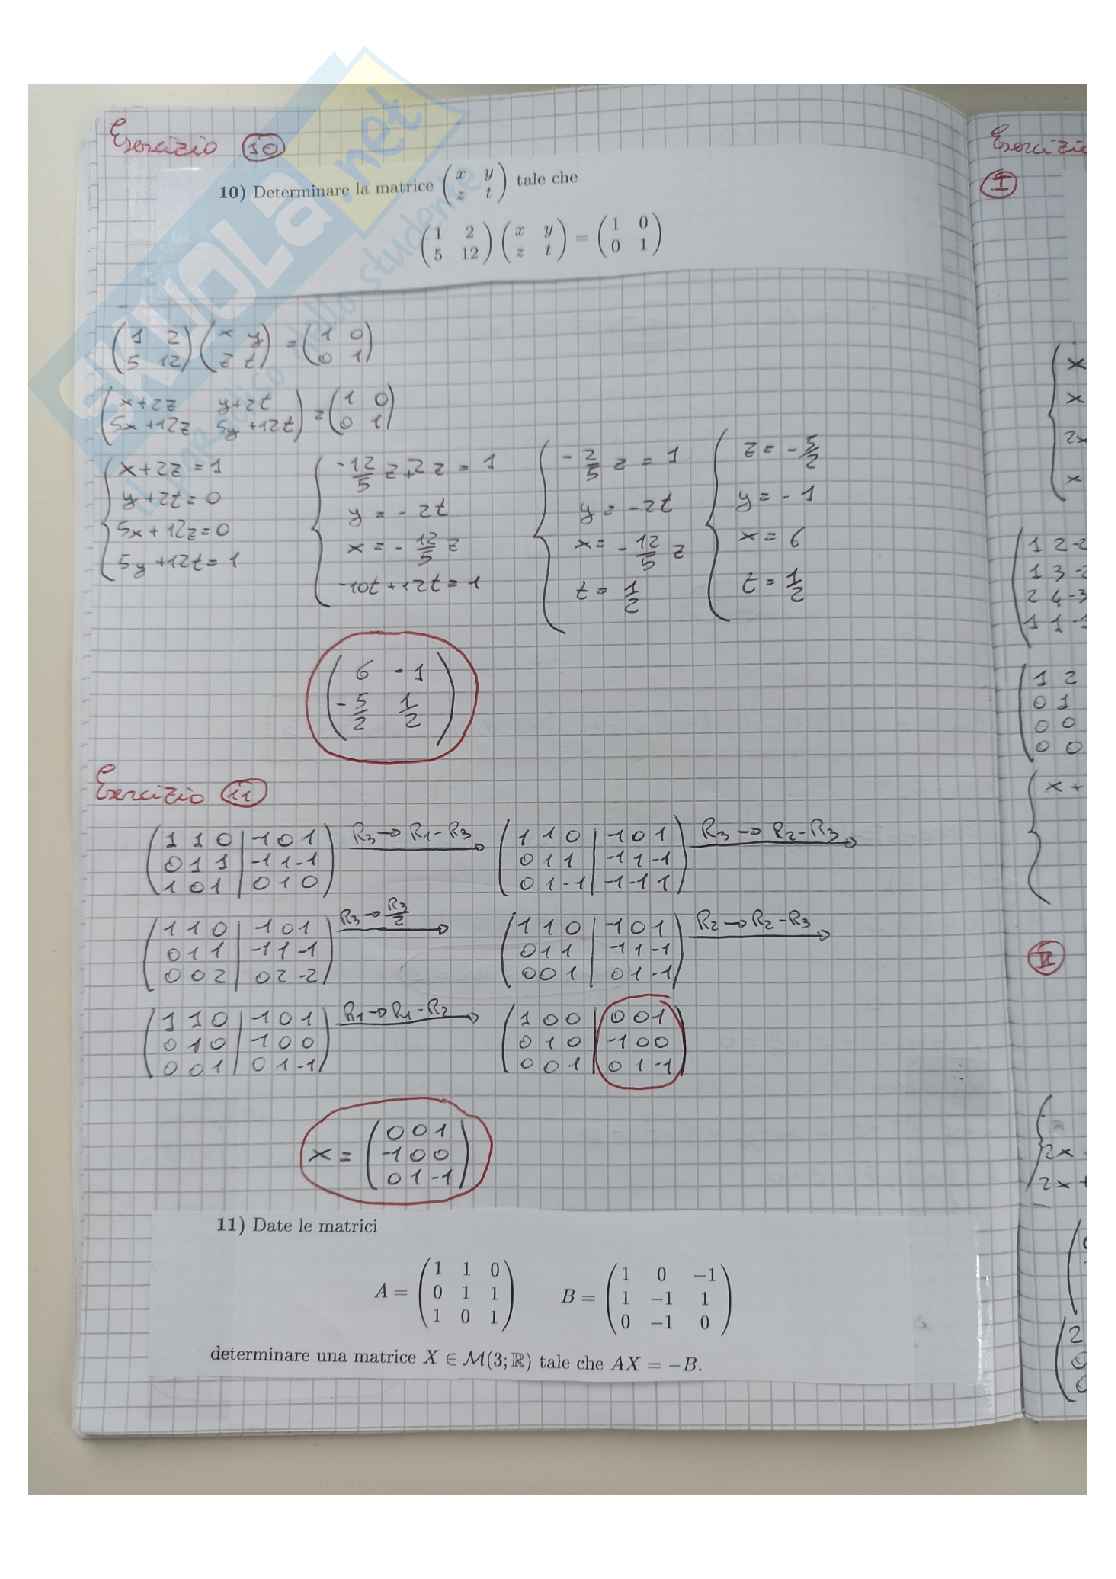 Esercizio 10
10) Determinare la matrice (x y / z t) tale che
(1 2 / 5 12) (x y / z t) = (1 0 / 0 1)
(1 2 / 5 12) (x y / z t) = (1 0 / 0 1)
(x+2z y+2t / 5x+12z 5y+12t) = (1 0 / 0 1)
{ x+2z=1 { -12/5 z+2z=1 { -2/5 z=1 { z=-5/2
y+2t=0 y=-2t y=-2t y=-1
5x+12z=0 x=-12/5 z x=-12/5 z x=6
5y+12t=1 -10t+12t=1 t=1/2 t=1/2
(6 -1 / -5/2 1/2)
Esercizio 11
(1 1 0 | -1 0 1 / 0 1 1 | -1 1 -1 / 1 0 1 | 0 1 0) R3→R1-R3 (1 1 0 | -1 0 1 / 0 1 1 | -1 1 -1 / 0 1 -1 | -1 -1 1) R3→R2-R3
(1 1 0 | -1 0 1 / 0 1 1 | -1 1 -1 / 0 0 2 | 0 2 -2) R3→R3/2 (1 1 0 | -1 0 1 / 0 1 1 | -1 1 -1 / 0 0 1 | 0 1 -1) R2→R2-R3
(1 1 0 | -1 0 1 / 0 1 0 | -1 0 0 / 0 0 1 | 0 1 -1) R1→R1-R2 (1 0 0 | 0 0 1 / 0 1 0 | -1 0 0 / 0 0 1 | 0 1 -1)
X = (0 0 1 / -1 0 0 / 0 1 -1)
11) Date le matrici
A = (1 1 0 / 0 1 1 / 1 0 1) B = (1 0 -1 / 1 -1 1 / 0 -1 0)
determinare una matrice X ∈ M(3;ℝ) tale che AX = −B.
Esercizio
I
x
x
2x
x
1 2 -2
1 3 -2
2 4 -3
1 1 -1
1 2
0 1
0 0
0 0
x +
II
2x
2x+
2
SKUOLA.net